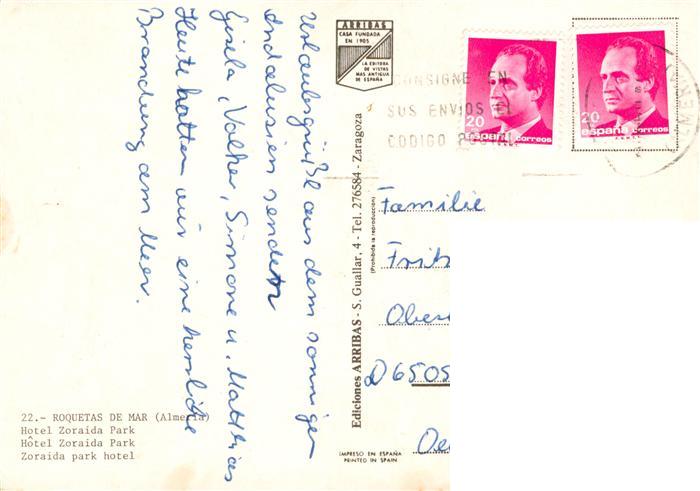 Urlaubsgrüße aus dem sonnigen
Andalusien senden
Gisela, Volker, Simone u. Matthias
Heute hatten wir eine herrliche
Brandung am Meer.
22.- ROQUETAS DE MAR (Almería)
Hotel Zoraida Park
Hôtel Zoraida Park
Zoraida park hotel
ARRIBAS
CASA FUNDADA
EN 1905
LA EDITORA
DE VISTAS
MAS ANTIGUA
DE ESPAÑA
Ediciones ARRIBAS - S. Guallar, 4 - Tel. 276584 - Zaragoza
(Prohibida la reproducción)
IMPRESO EN ESPAÑA
PRINTED IN SPAIN
CONSIGNE EN
SUS ENVIOS EL
CODIGO POSTAL
20
españa correos
20
españa correos
Familie
Frit
Ober
D6505